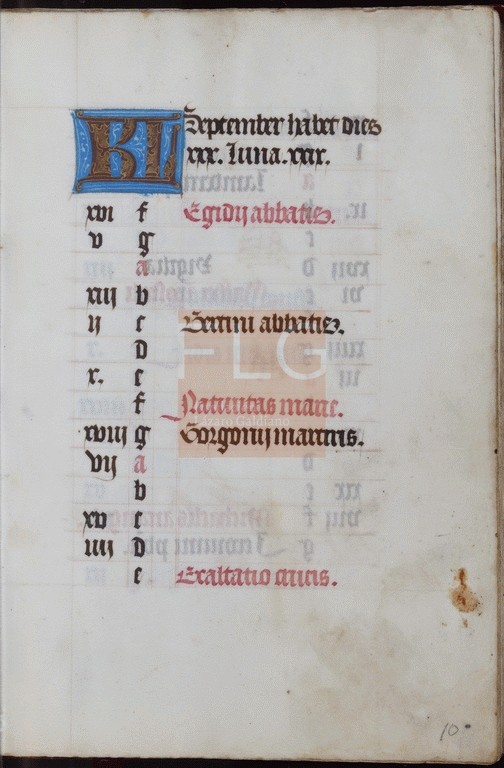 KL September habet dies
xxx. Luna. xxix.
xvi f Egidij abbatis.
v g
a
xiij b
ij c Bertini abbatis.
d
x. e
f Natiuitas marie.
xviij g Gorgonij martiris.
vij a
b
xv c
iiij d
e Exaltatio crucis.
FLG
Lázaro Galdiano
10